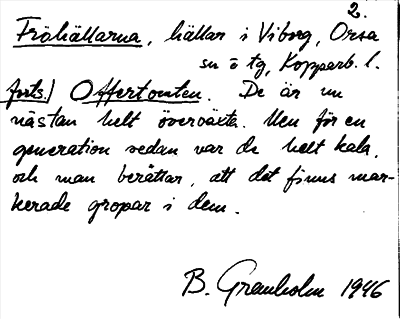 2.
Fröhällarna, hällar i Viborg, Orsa
sn o tg, Kopparb. l.
forts.) Offertomten. De är nu
nästan helt överväxta. Men för en
generation sedan var de helt kala,
och man berättar, att det finns mar-
kerade gropar i dem.
B. Granholm 1946